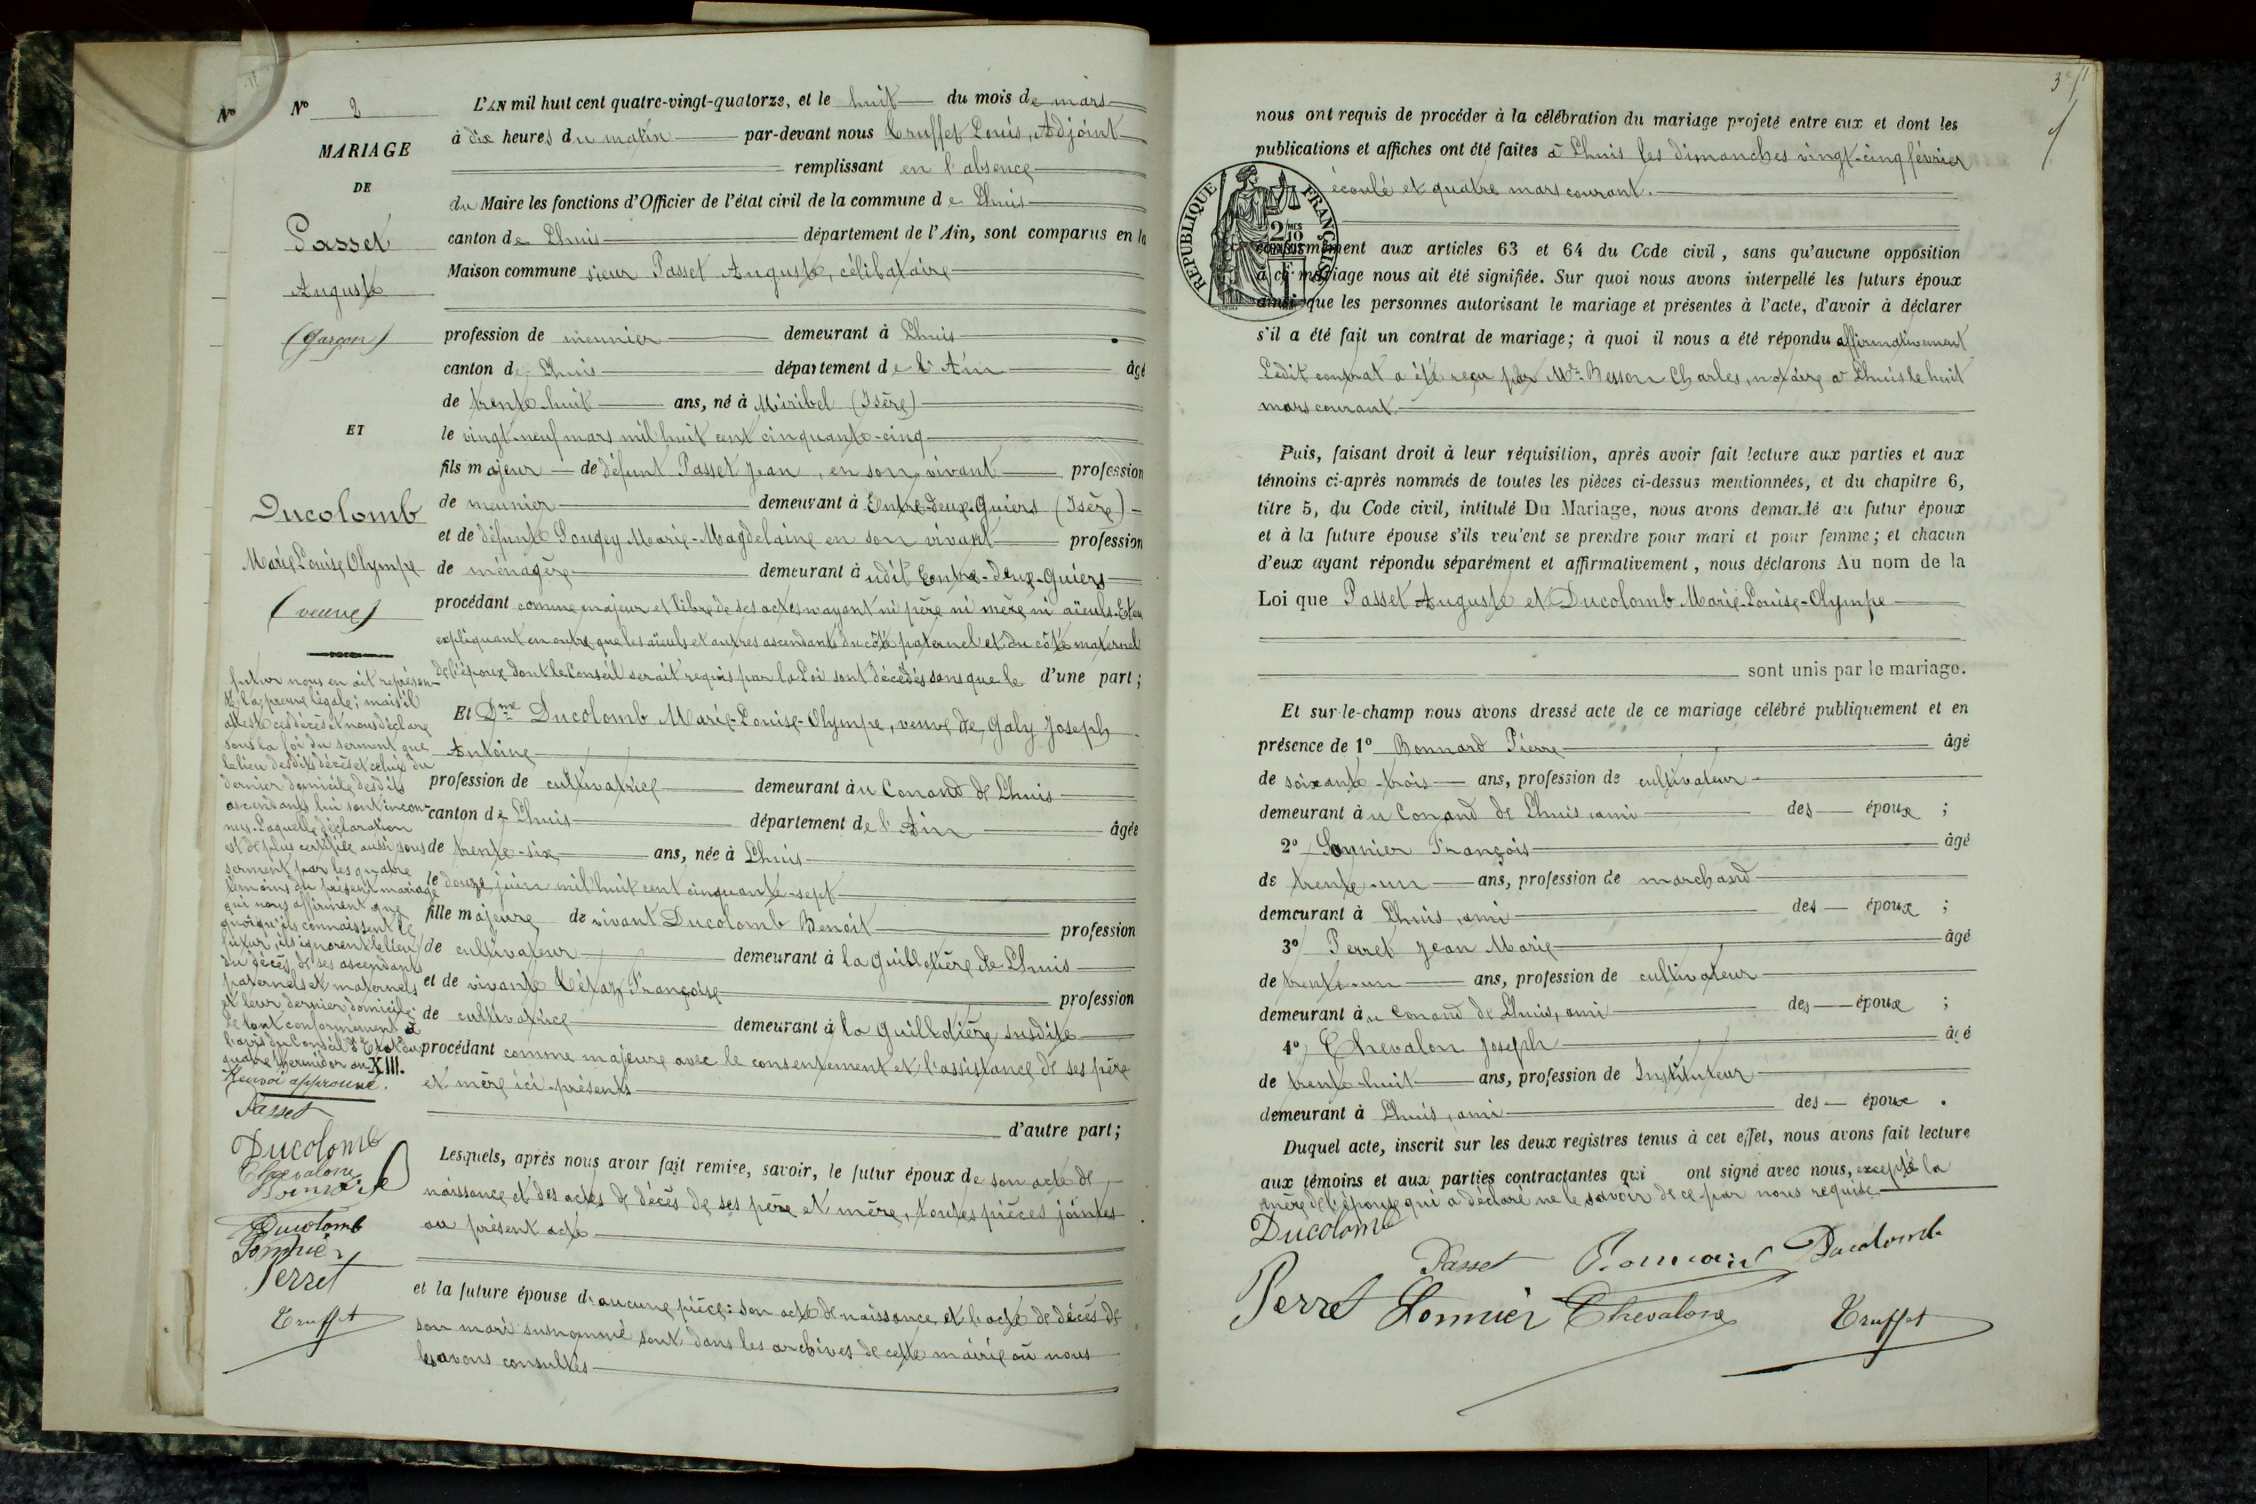 N°
N° 2
MARIAGE
DE
Passet
Auguste
(Garçon)
ET
Ducolomb
Marie Louise Olympe
(veuve)
L'AN mil huit cent quatre-vingt-quatorze, et le huit du mois de mars
à dix heures du matin par-devant nous Truffet Louis, Adjoint
remplissant en l'absence
du Maire les fonctions d'Officier de l'état civil de la commune de Lhuis
canton de Lhuis département de l'Ain, sont comparus en la
Maison commune sieur Passet Auguste, célibataire
profession de meunier demeurant à Lhuis
canton de Lhuis département de l'Ain âgé
de trente-huit ans, né à Miribel (Isère)
le vingt-neuf mars mil huit cent cinquante-cinq
fils majeur de défunt Passet Jean, en son vivant profession
de meunier demeurant à Entre-deux-Guiers (Isère)
et de défunte Gougey Marie-Magdelaine en son vivant profession
de ménagère demeurant à udit Entre-deux-Guiers
procédant comme majeur et libre de ses actes n'ayant ni père ni mère ni aïeuls. Et en
expliquant en outre que les aïeuls et autres ascendants du côté paternel et du côté maternel
de l'époux dont le Conseil serait requis par la Loi sont décédés sans que le d'une part;
futur nous en ait représen-
té la preuve légale; mais il
atteste ces décès et nous déclare
sous la foi du serment que
le lieu desdits décès et celui du
dernier domicile desdits
ascendants lui sont incon-
nus. Laquelle déclaration
est de plus certifiée aussi sous
serment par les quatre
témoins du présent mariage
qui nous affirment que
quoiqu'ils connaissent le
futur, ils ignorent le lieu
du décès de ses ascendants
paternels et maternels
et leur dernier domicile.
Le tout conformément à
l'avis du Conseil d'Etat du
quatre thermidor an XIII.
Renvoi approuvé.
Passet
Ducolomb
Chevalon
Bonnard
Ducolomb
Sonnier
Perret
Truffet
Et Dme Ducolomb Marie-Louise-Olympe, veuve de Galy Joseph
Antoine
profession de cultivatrice demeurant àu Conand de Lhuis
canton de Lhuis département de l'Ain âgée
de trente-six ans, née à Lhuis
le douze juin mil huit cent cinquante-sept
fille majeure de vivant Ducolomb Benoît profession
de cultivateur demeurant à la Guillotière de Lhuis
et de vivante Françoise profession
de cultivatrice demeurant à la Guillotière susdite
procédant comme majeure avec le consentement et l'assistance de ses père
et mère ici-présents
d'autre part;
Lesquels, après nous avoir fait remise, savoir, le futur époux de son acte de
naissance et des actes de décès de ses père et mère, toutes pièces jointes
au présent acte
et la future épouse d'aucune pièce: son acte de naissance et l'acte de décès de
son mari susnommé sont dans les archives de cette mairie où nous
les avons consultés
3
nous ont requis de procéder à la célébration du mariage projeté entre eux et dont les
publications et affiches ont été faites à Lhuis les dimanches vingt-cinq février
écoulé et quatre mars courant.
REPUBLIQUE FRANÇAISE
2 10 MES
conformément aux articles 63 et 64 du Code civil, sans qu'aucune opposition
à ce mariage nous ait été signifiée. Sur quoi nous avons interpellé les futurs époux
ainsi que les personnes autorisant le mariage et présentes à l'acte, d'avoir à déclarer
s'il a été fait un contrat de mariage; à quoi il nous a été répondu affirmativement
Ledit contrat a été reçu par Mtre Besson Charles, notaire à Lhuis le huit
mars courant.
Puis, faisant droit à leur réquisition, après avoir fait lecture aux parties et aux
témoins ci-après nommés de toutes les pièces ci-dessus mentionnées, et du chapitre 6,
titre 5, du Code civil, intitulé Du Mariage, nous avons demandé au futur époux
et à la future épouse s'ils veulent se prendre pour mari et pour femme; et chacun
d'eux ayant répondu séparément et affirmativement, nous déclarons Au nom de la
Loi que Passet Auguste et Ducolomb Marie-Louise-Olympe
sont unis par le mariage.
Et sur-le-champ nous avons dressé acte de ce mariage célébré publiquement et en
présence de 1° Bonnard Pierre âgé
de soixante-trois ans, profession de cultivateur
demeurant àu Conand de Lhuis, ami des époux ;
2° Sonnier François âgé
de trente-un ans, profession de marchand
demeurant à Lhuis, ami des époux ;
3° Perret Jean Marie âgé
de trente-un ans, profession de cultivateur
demeurant àu Conand de Lhuis, ami des époux ;
4° Chevalon Joseph âgé
de trente-huit ans, profession de Instituteur
demeurant à Lhuis, ami des époux .
Duquel acte, inscrit sur les deux registres tenus à cet effet, nous avons fait lecture
aux témoins et aux parties contractantes qui ont signé avec nous, excepté la
mère de l'épouse qui a déclaré ne le savoir de ce par nous requise
Ducolomb
Passet Bonnard Ducolomb
Perret Sonnier Chevalon Truffet